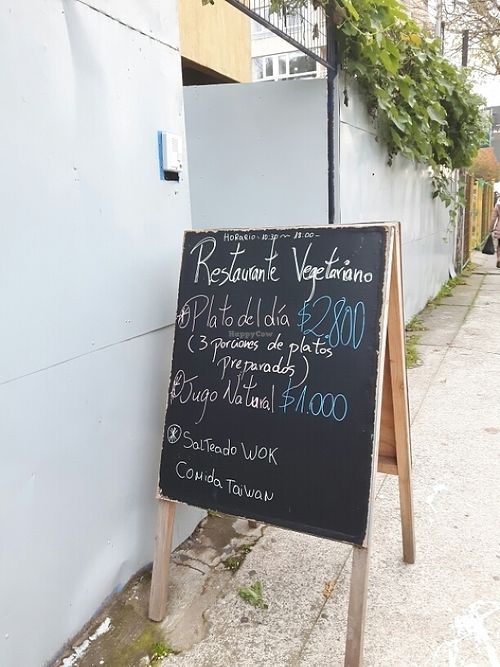 HORARIO - 10:30 ~ 18:00 -
Restaurante Vegetariano
Plato del día $2.800
(3 porciones de platos
preparados)
Jugo Natural $1.000
Salteado WOK
Comida Taiwan
HappyCow